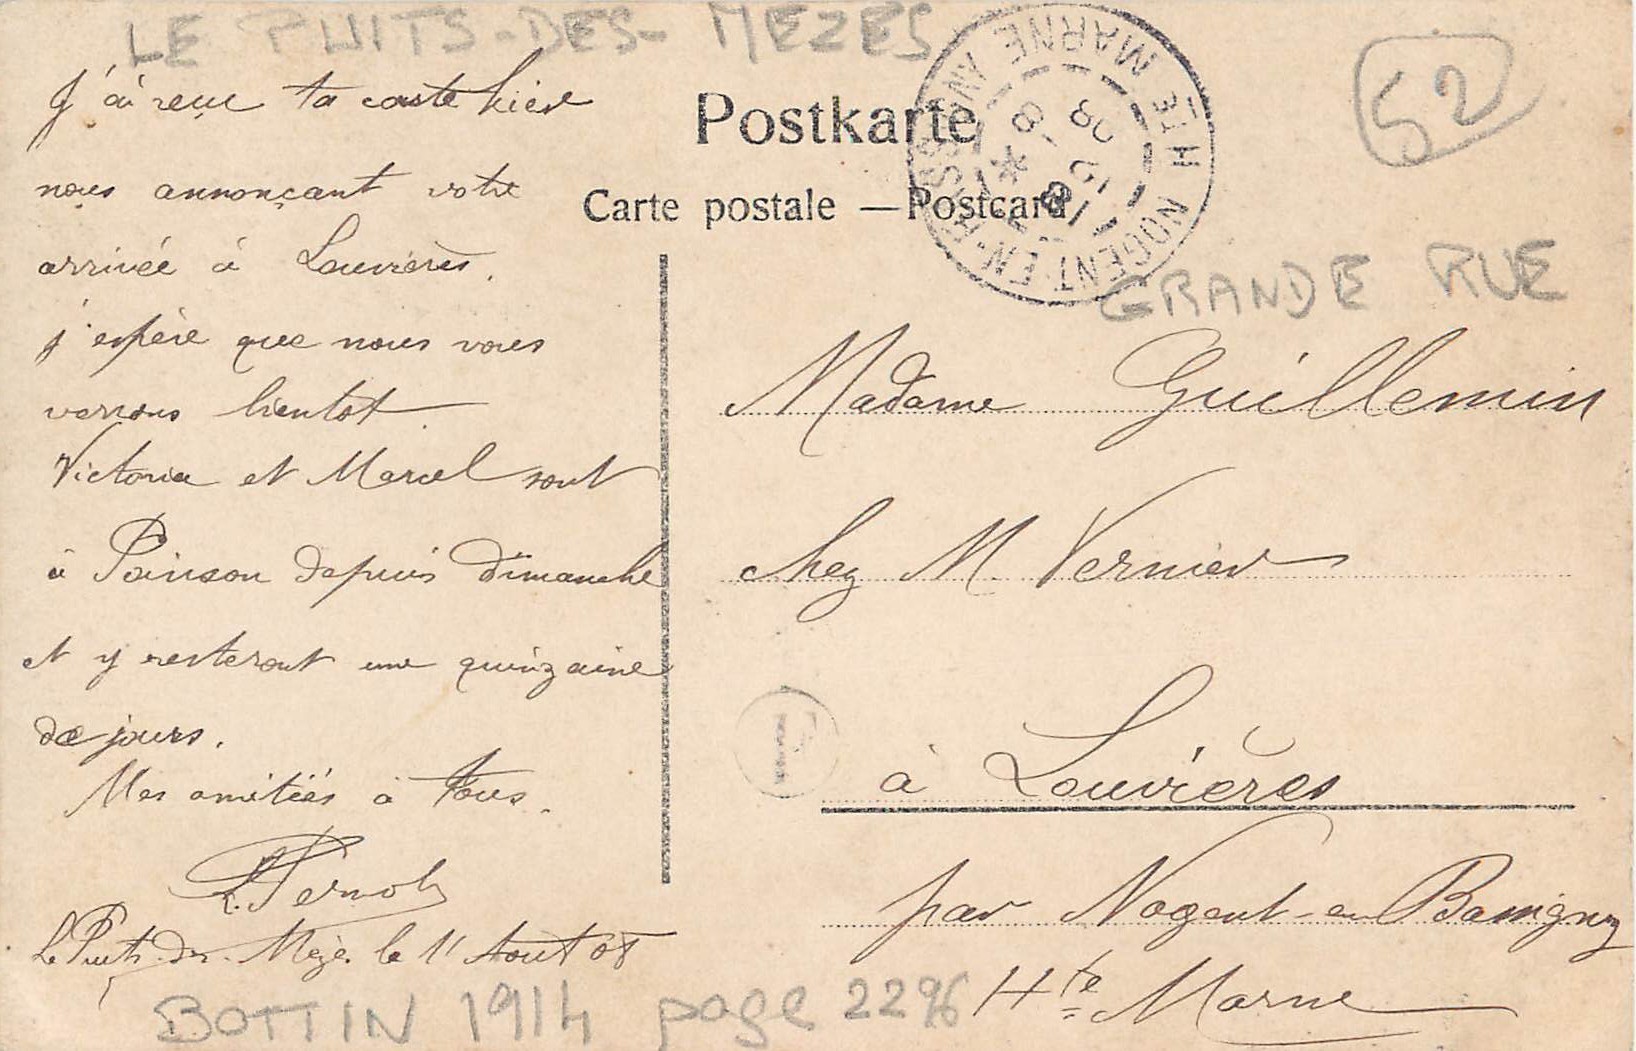 LE PUITS-DES-MEZES
J'ai reçu ta carte hier
nous annonçant votre
arrivée à Louvières.
j'espère que nous vous
verrons bientot.
Victoria et Marcel sont
à Poinson depuis dimanche
et y resteront une quinzaine
de jours.
Mes amitiés à tous.
Pernot
Le Puits des Mèze le 11 Aout 08
BOTTIN 1914 page 2296
Postkarte
Carte postale — Postcard
NOGENT-EN-BASSIGNY HTE MARNE
52
GRANDE RUE
Madame Guillemin
chez M. Vernier
à Louvières
par Nogent-en-Bassigny
Hte Marne